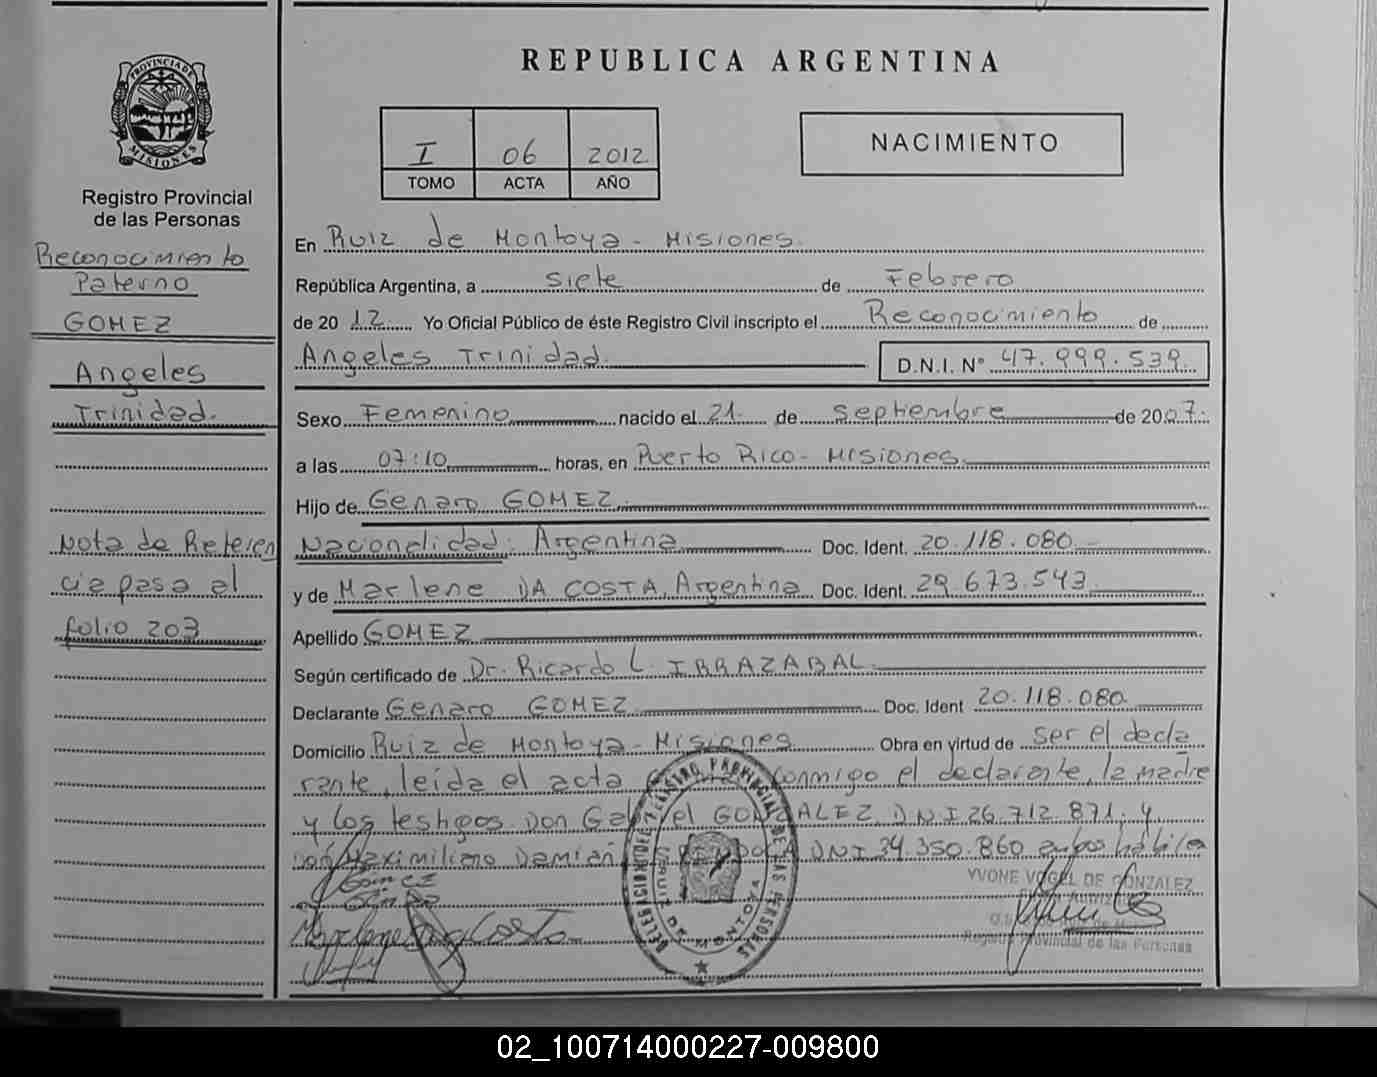 REPUBLICA ARGENTINA
PROVINCIA DE
MISIONES
Registro Provincial
de las Personas
Reconocimiento
Paterno
GOMEZ
Angeles
Trinidad.
Nota de Referen
cia pasa al
folio 203
I 06 2012
TOMO ACTA AÑO
NACIMIENTO
En Ruiz de Montoya - Misiones.
República Argentina, a siete de Febrero
de 20 12 Yo Oficial Público de éste Registro Civil inscripto el Reconocimiento de
Angeles Trinidad. D.N.I. Nº 47.999.539.
Sexo Femenino nacido el 21 de septiembre de 2007.
a las 07:10 horas, en Puerto Rico - Misiones.
Hijo de Genaro GOMEZ.
Nacionalidad: Argentina Doc. Ident. 20.118.080
y de Marlene DA COSTA, Argentina Doc. Ident. 29.673.543
Apellido GOMEZ
Según certificado de Dr. Ricardo L. IRRAZABAL.
Declarante Genaro GOMEZ Doc. Ident 20.118.080.
Domicilio Ruiz de Montoya - Misiones Obra en virtud de ser el decla
rante, leída el acta conmigo el declarante, la madre
y los testigos Don GONZALEZ DNI 26.712.871. y
Don Maximiliano Damian DNI 34.350.860 ambos hábiles
Gomez
Genaro
Marlene Da Costa
DELEGACION DEL REGISTRO PROVINCIAL DE LAS PERSONAS
RUIZ DE MONTOYA
YVONE VOGEL DE GONZALEZ
Registro Provincial de las Personas
02_100714000227-009800